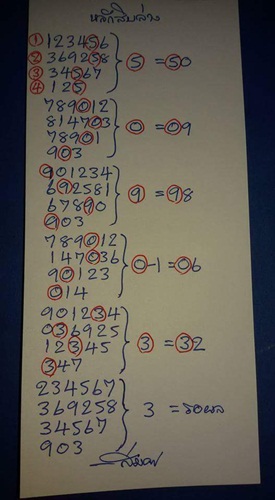 หลักสิบล่าง
① 123456
② 369258
③ 34567
④ 125
5 = 50
789012
814703
78901
903
0 = 09
901234
692581
67890
903
9 = 98
789012
147036
90123
014
0-1 = 06
901234
036925
12345
347
3 = 32
234567
369258
34567
903
3 = รอผล